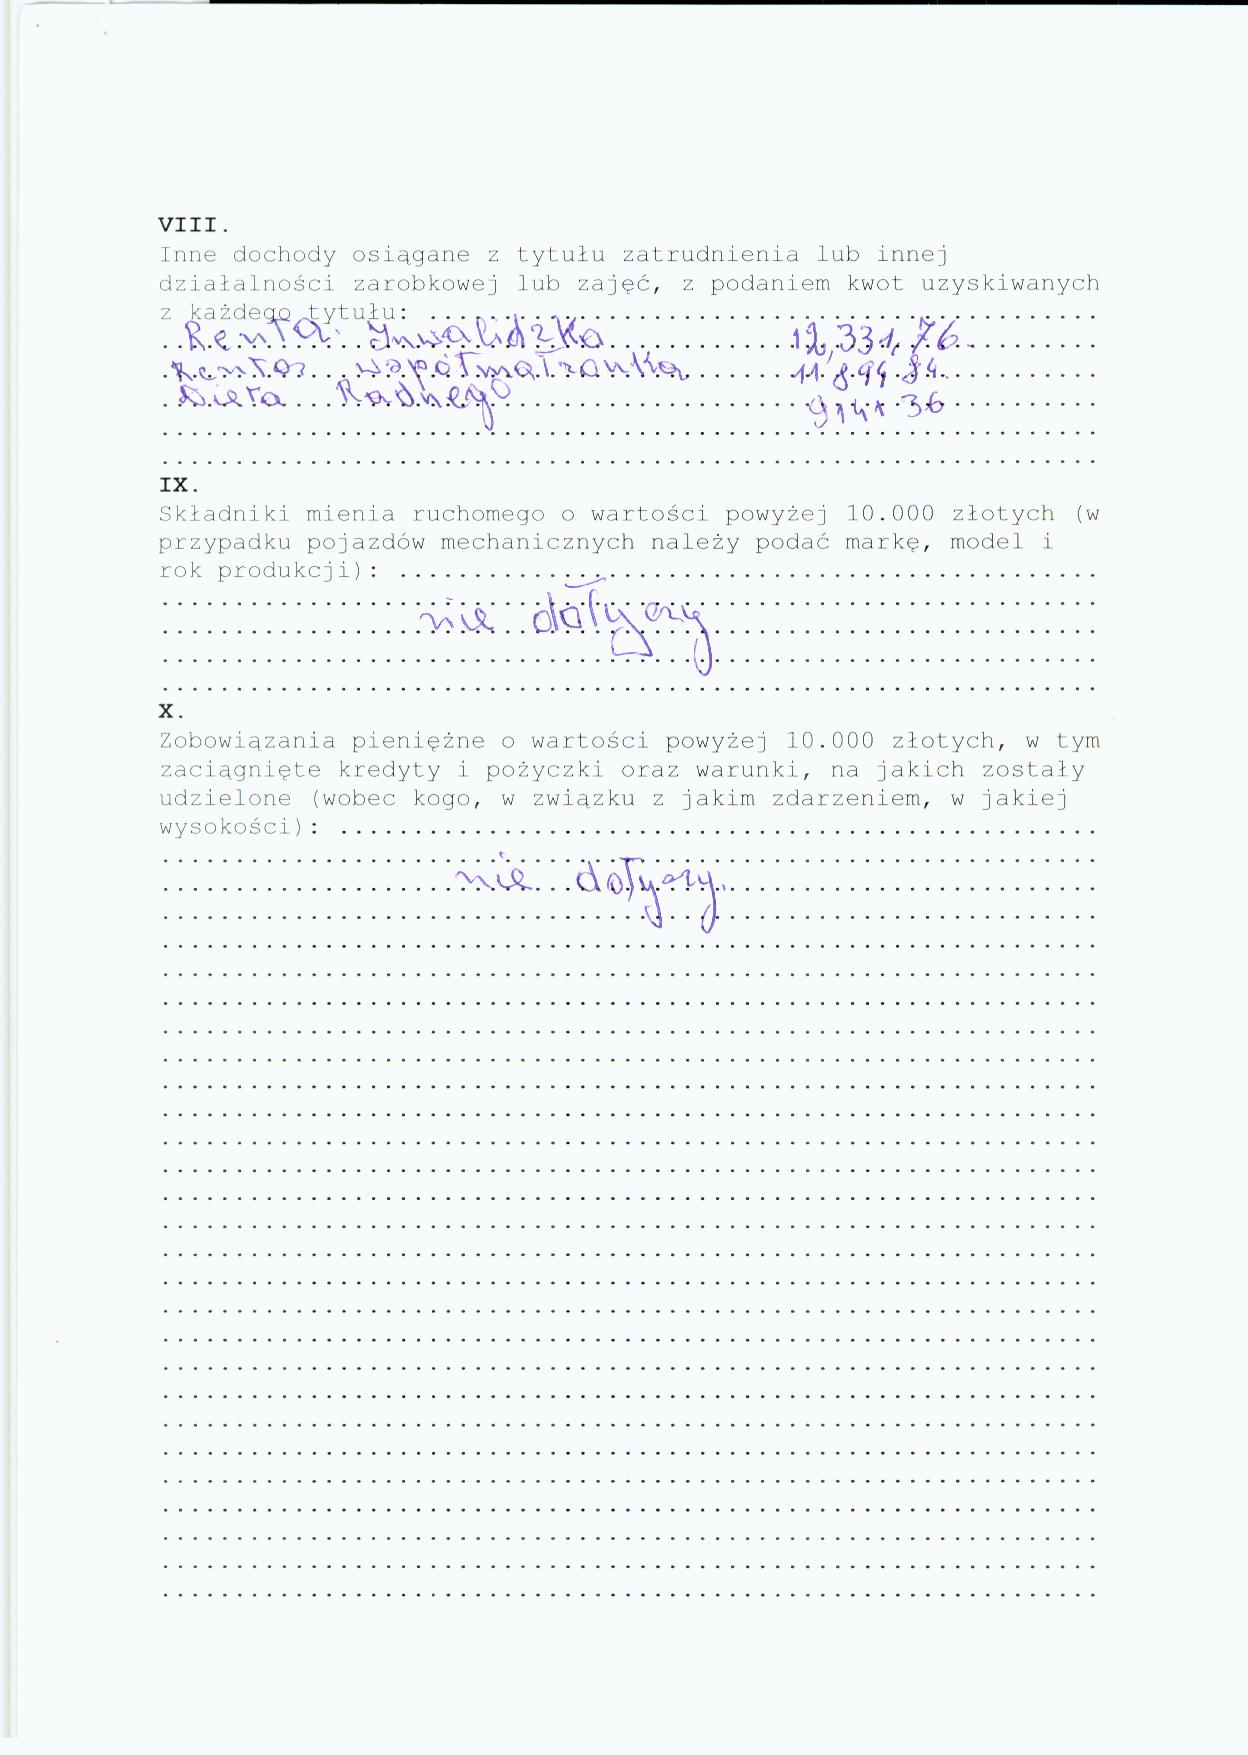 VIII.
Inne dochody osiągane z tytułu zatrudnienia lub innej
działalności zarobkowej lub zajęć, z podaniem kwot uzyskiwanych
z każdego tytułu: ................................................
Renta Inwalidzka 12,331,76
Renta współmałżonka 11.894.84
Dieta Radnego
IX.
Składniki mienia ruchomego o wartości powyżej 10.000 złotych (w
przypadku pojazdów mechanicznych należy podać markę, model i
rok produkcji): ................................................
nie dotyczy
X.
Zobowiązania pieniężne o wartości powyżej 10.000 złotych, w tym
zaciągnięte kredyty i pożyczki oraz warunki, na jakich zostały
udzielone (wobec kogo, w związku z jakim zdarzeniem, w jakiej
wysokości): ....................................................
nie dotyczy.